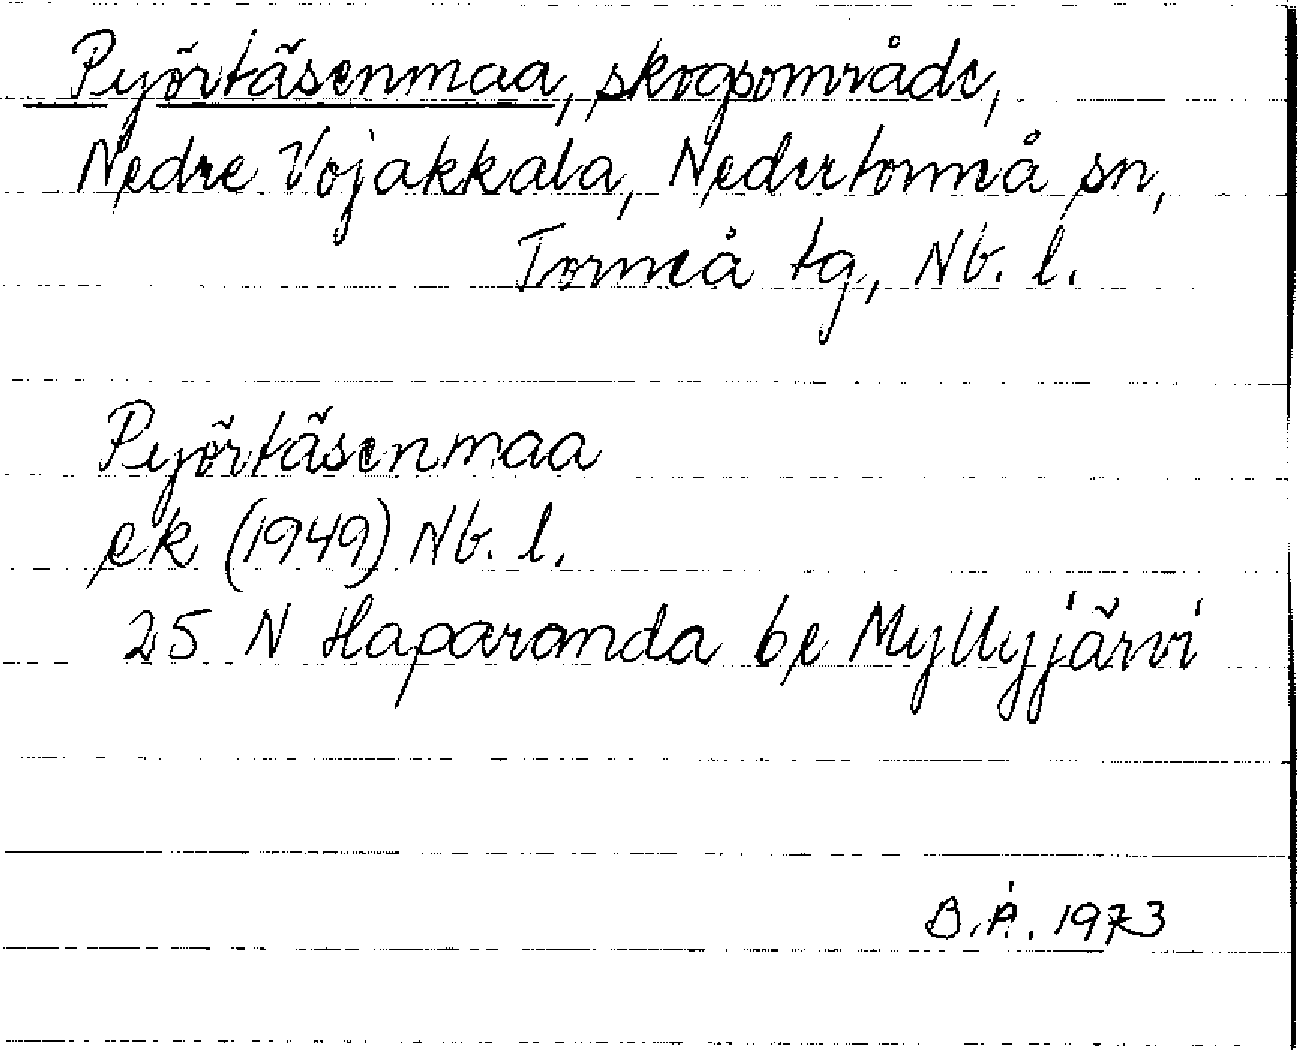 Pyörtäsenmaa, skogsområde,
Nedre Vojakkala, Nedertorneå sn,
Torneå tg, Nb. l.
Pyörtäsenmaa
ek (1949) Nb. l.
25 N Haparanda be Myllyjärvi
B.Å. 1973